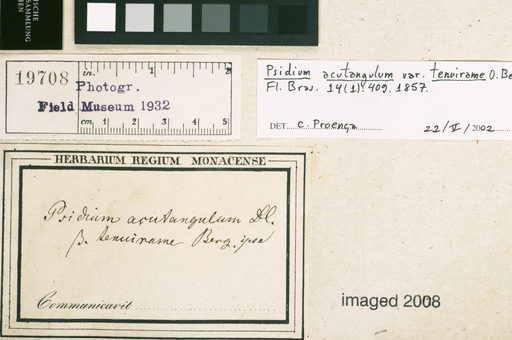 ISCHE
SAMMLUNG
EN
19708
in. 1 2
Photogr.
Field Museum 1932
cm. 1 2 3 4 5
Psidium acutangulum var. tenuirame O. Be
Fl. Bras. 14(1): 409. 1857.
DET. C. Proença 22/V/2002
HERBARIUM REGIUM MONACENSE.
Psidium acutangulum DC.
β. tenuirame Berg. ipse
Communicavit
imaged 2008